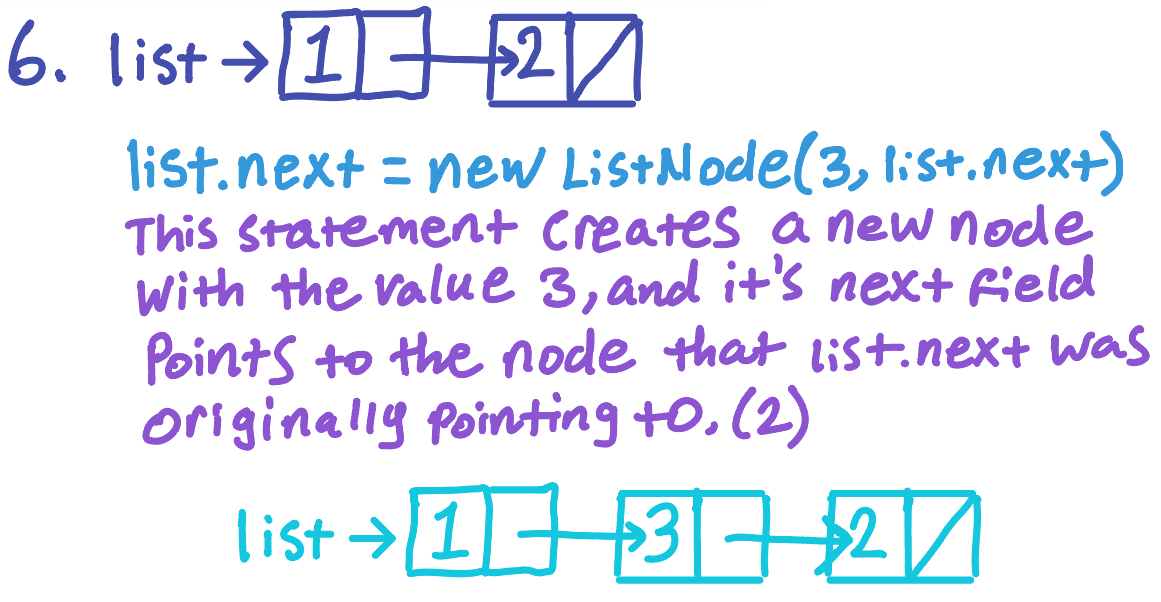 6. list → 1 → 2
list.next = new ListNode(3, list.next)
This statement creates a new node
with the value 3, and it's next field
points to the node that list.next was
originally pointing to. (2)
list → 1 → 3 → 2